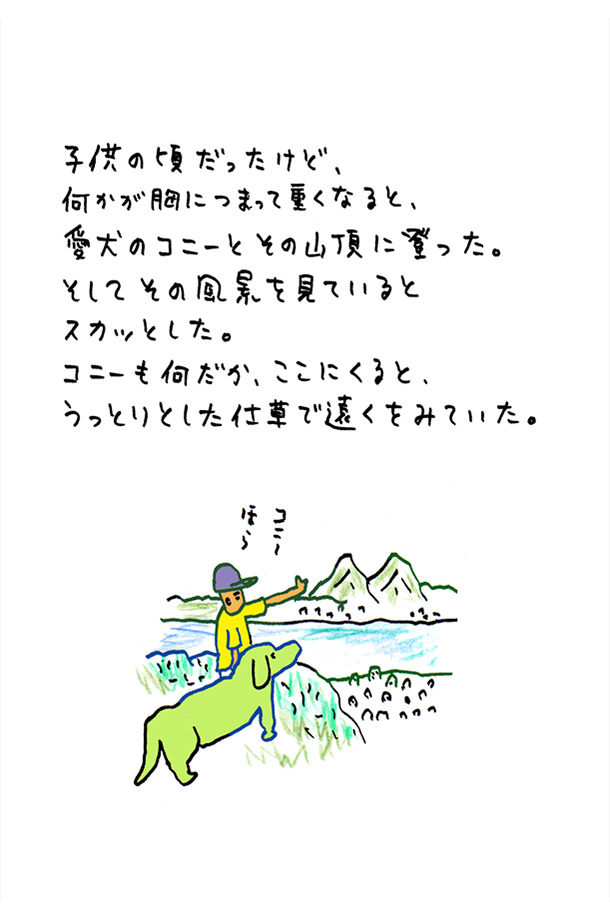 子供の頃だったけど、
何かが胸につまって重くなると、
愛犬のコニーとその山頂に登った。
そしてその風景を見ていると
スカッとした。
コニーも何だか、ここにくると、
うっとりとした仕草で遠くをみていた。
コニー
ほら